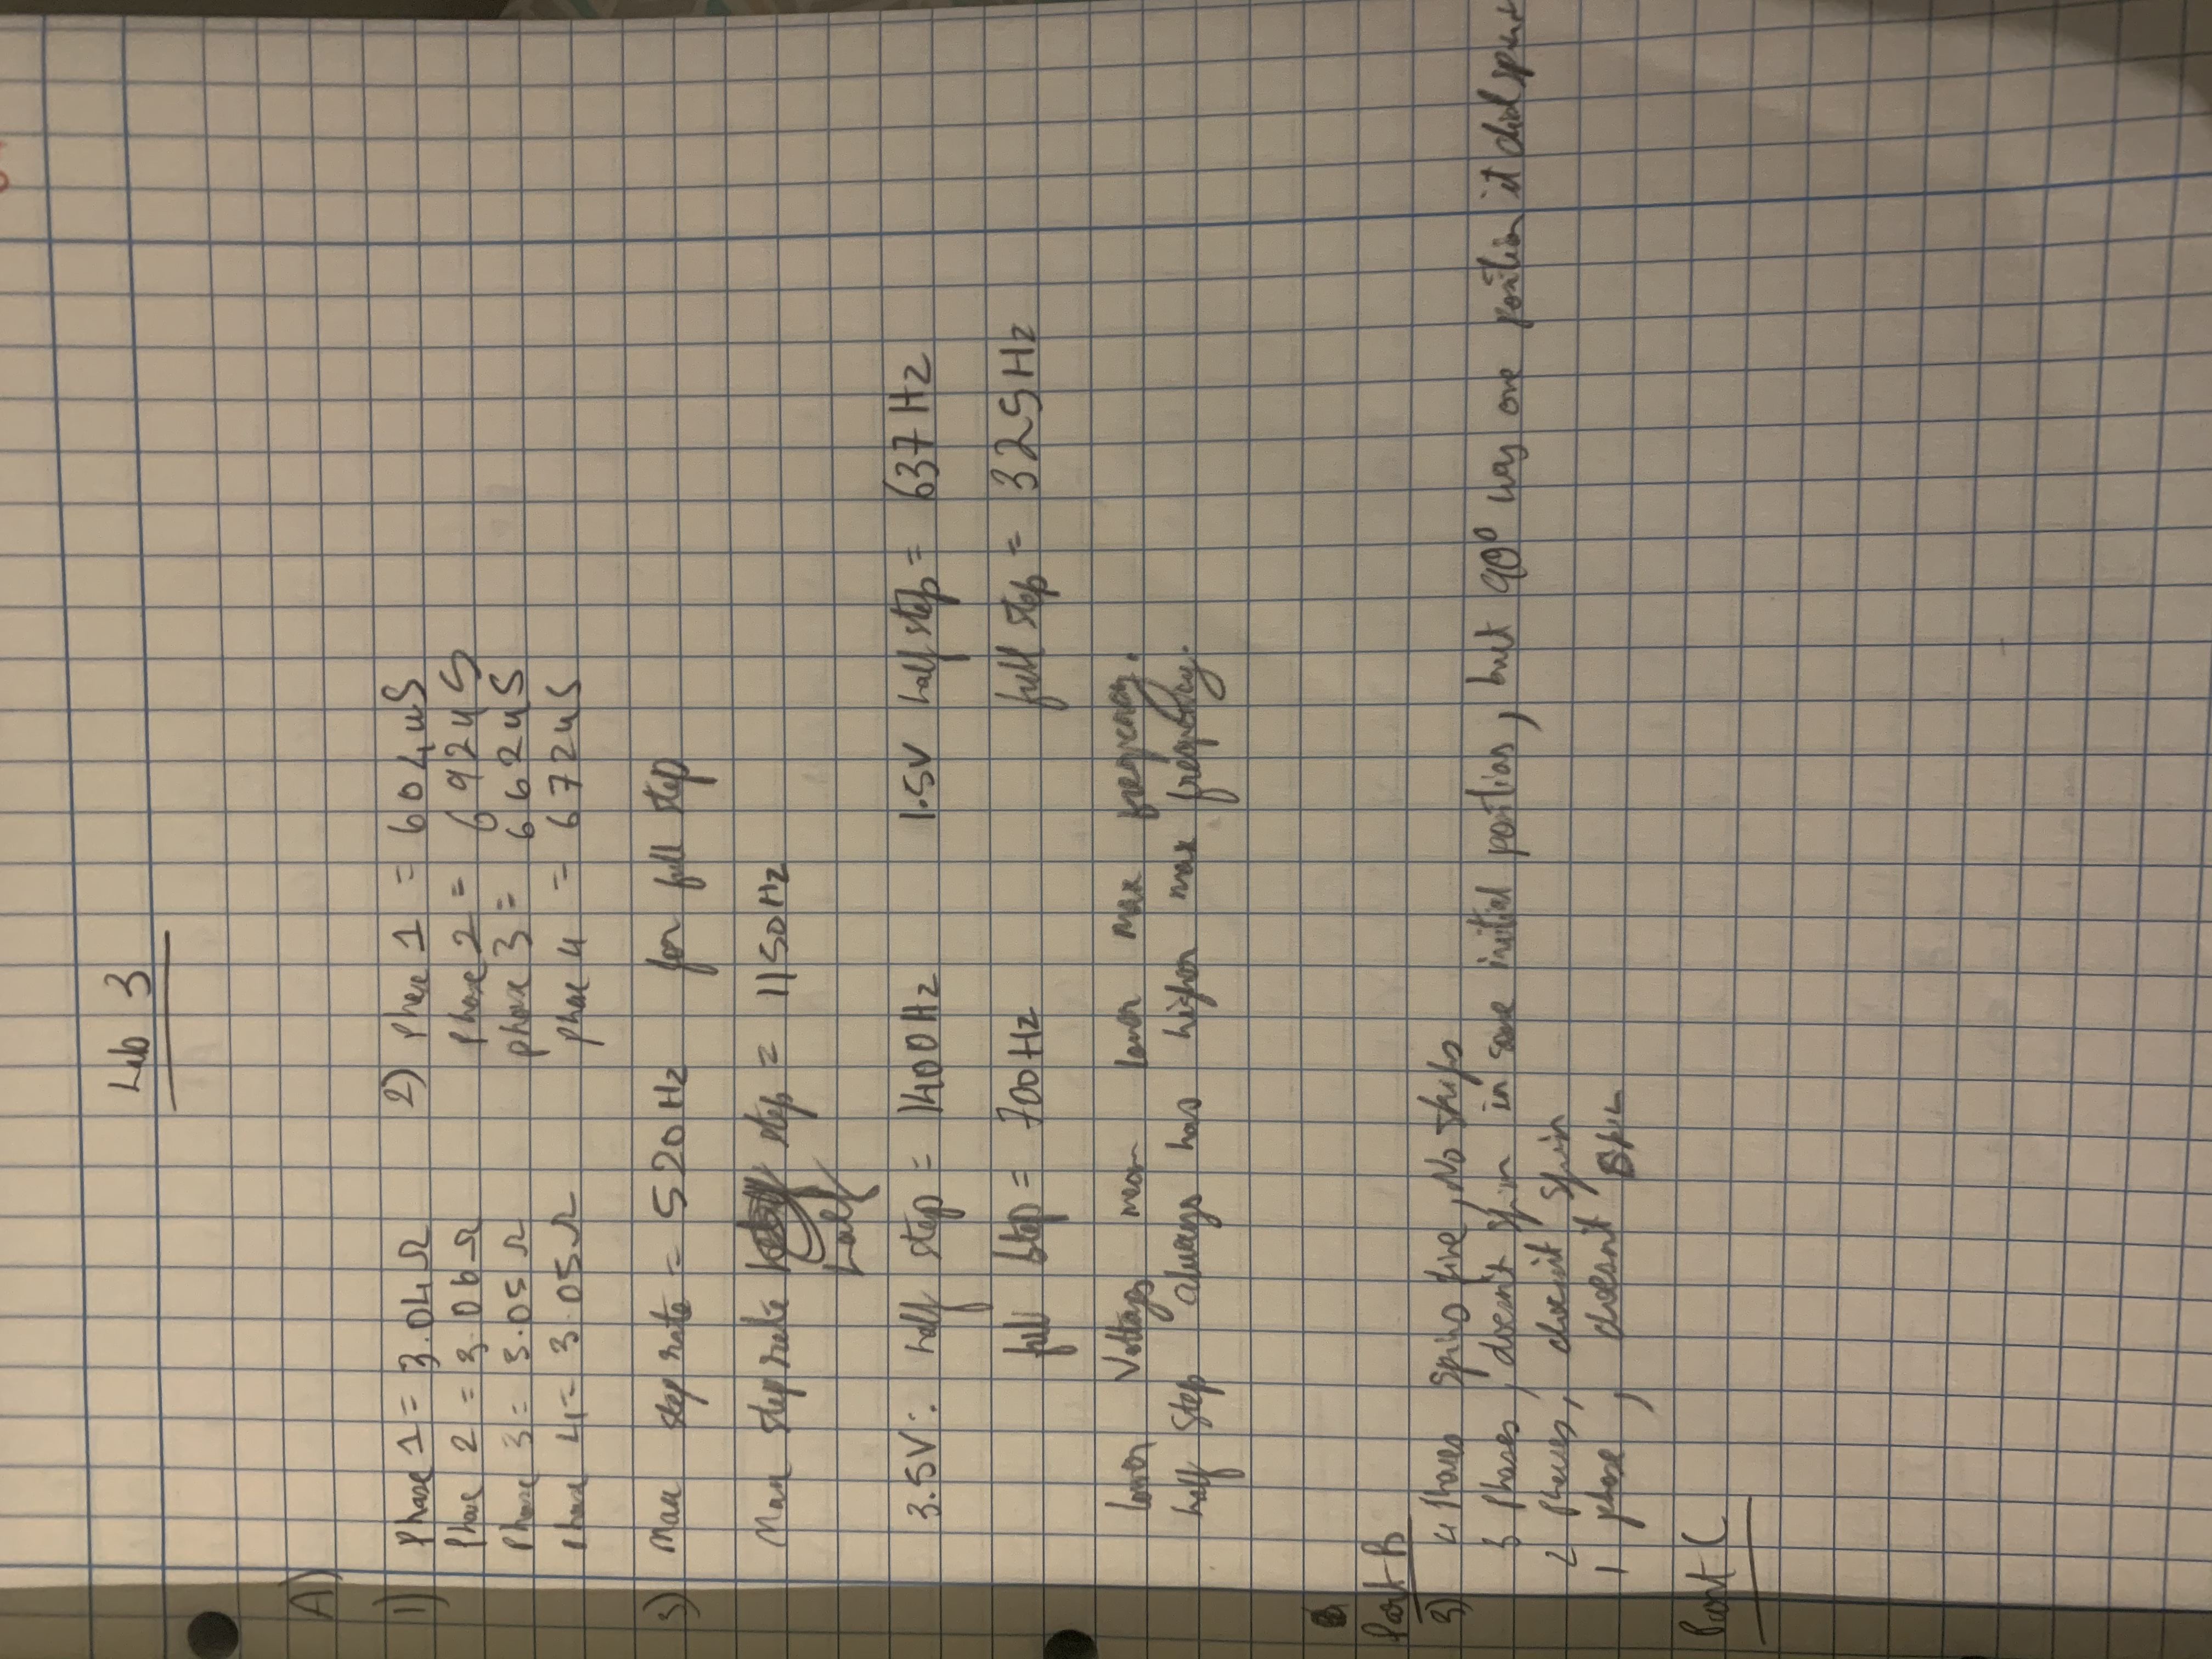 Lab 3
A)
1) Phase 1 = 3.04Ω 2) Phase 1 = 604uS
Phase 2 = 3.06Ω Phase 2 = 692uS
Phase 3 = 3.05Ω phase 3 = 662uS
Phase 4 = 3.05Ω phase 4 = 672uS
3) Max step rate = 520Hz for full step
Max step rate step = 1150Hz
half
3.5V: half step = 1400Hz 1.5V half step = 637Hz
full step = 700Hz full step = 325Hz
lower Voltages mean lower max frequency.
half step always has higher max frequency.
Part B
3) 4 Phases spins fine, No skips
3 Phases, doesn't spin in some initial position, but 90° was one position it did spin
2 Phases, doesn't spin
1 phase, doesn't spin
Part C